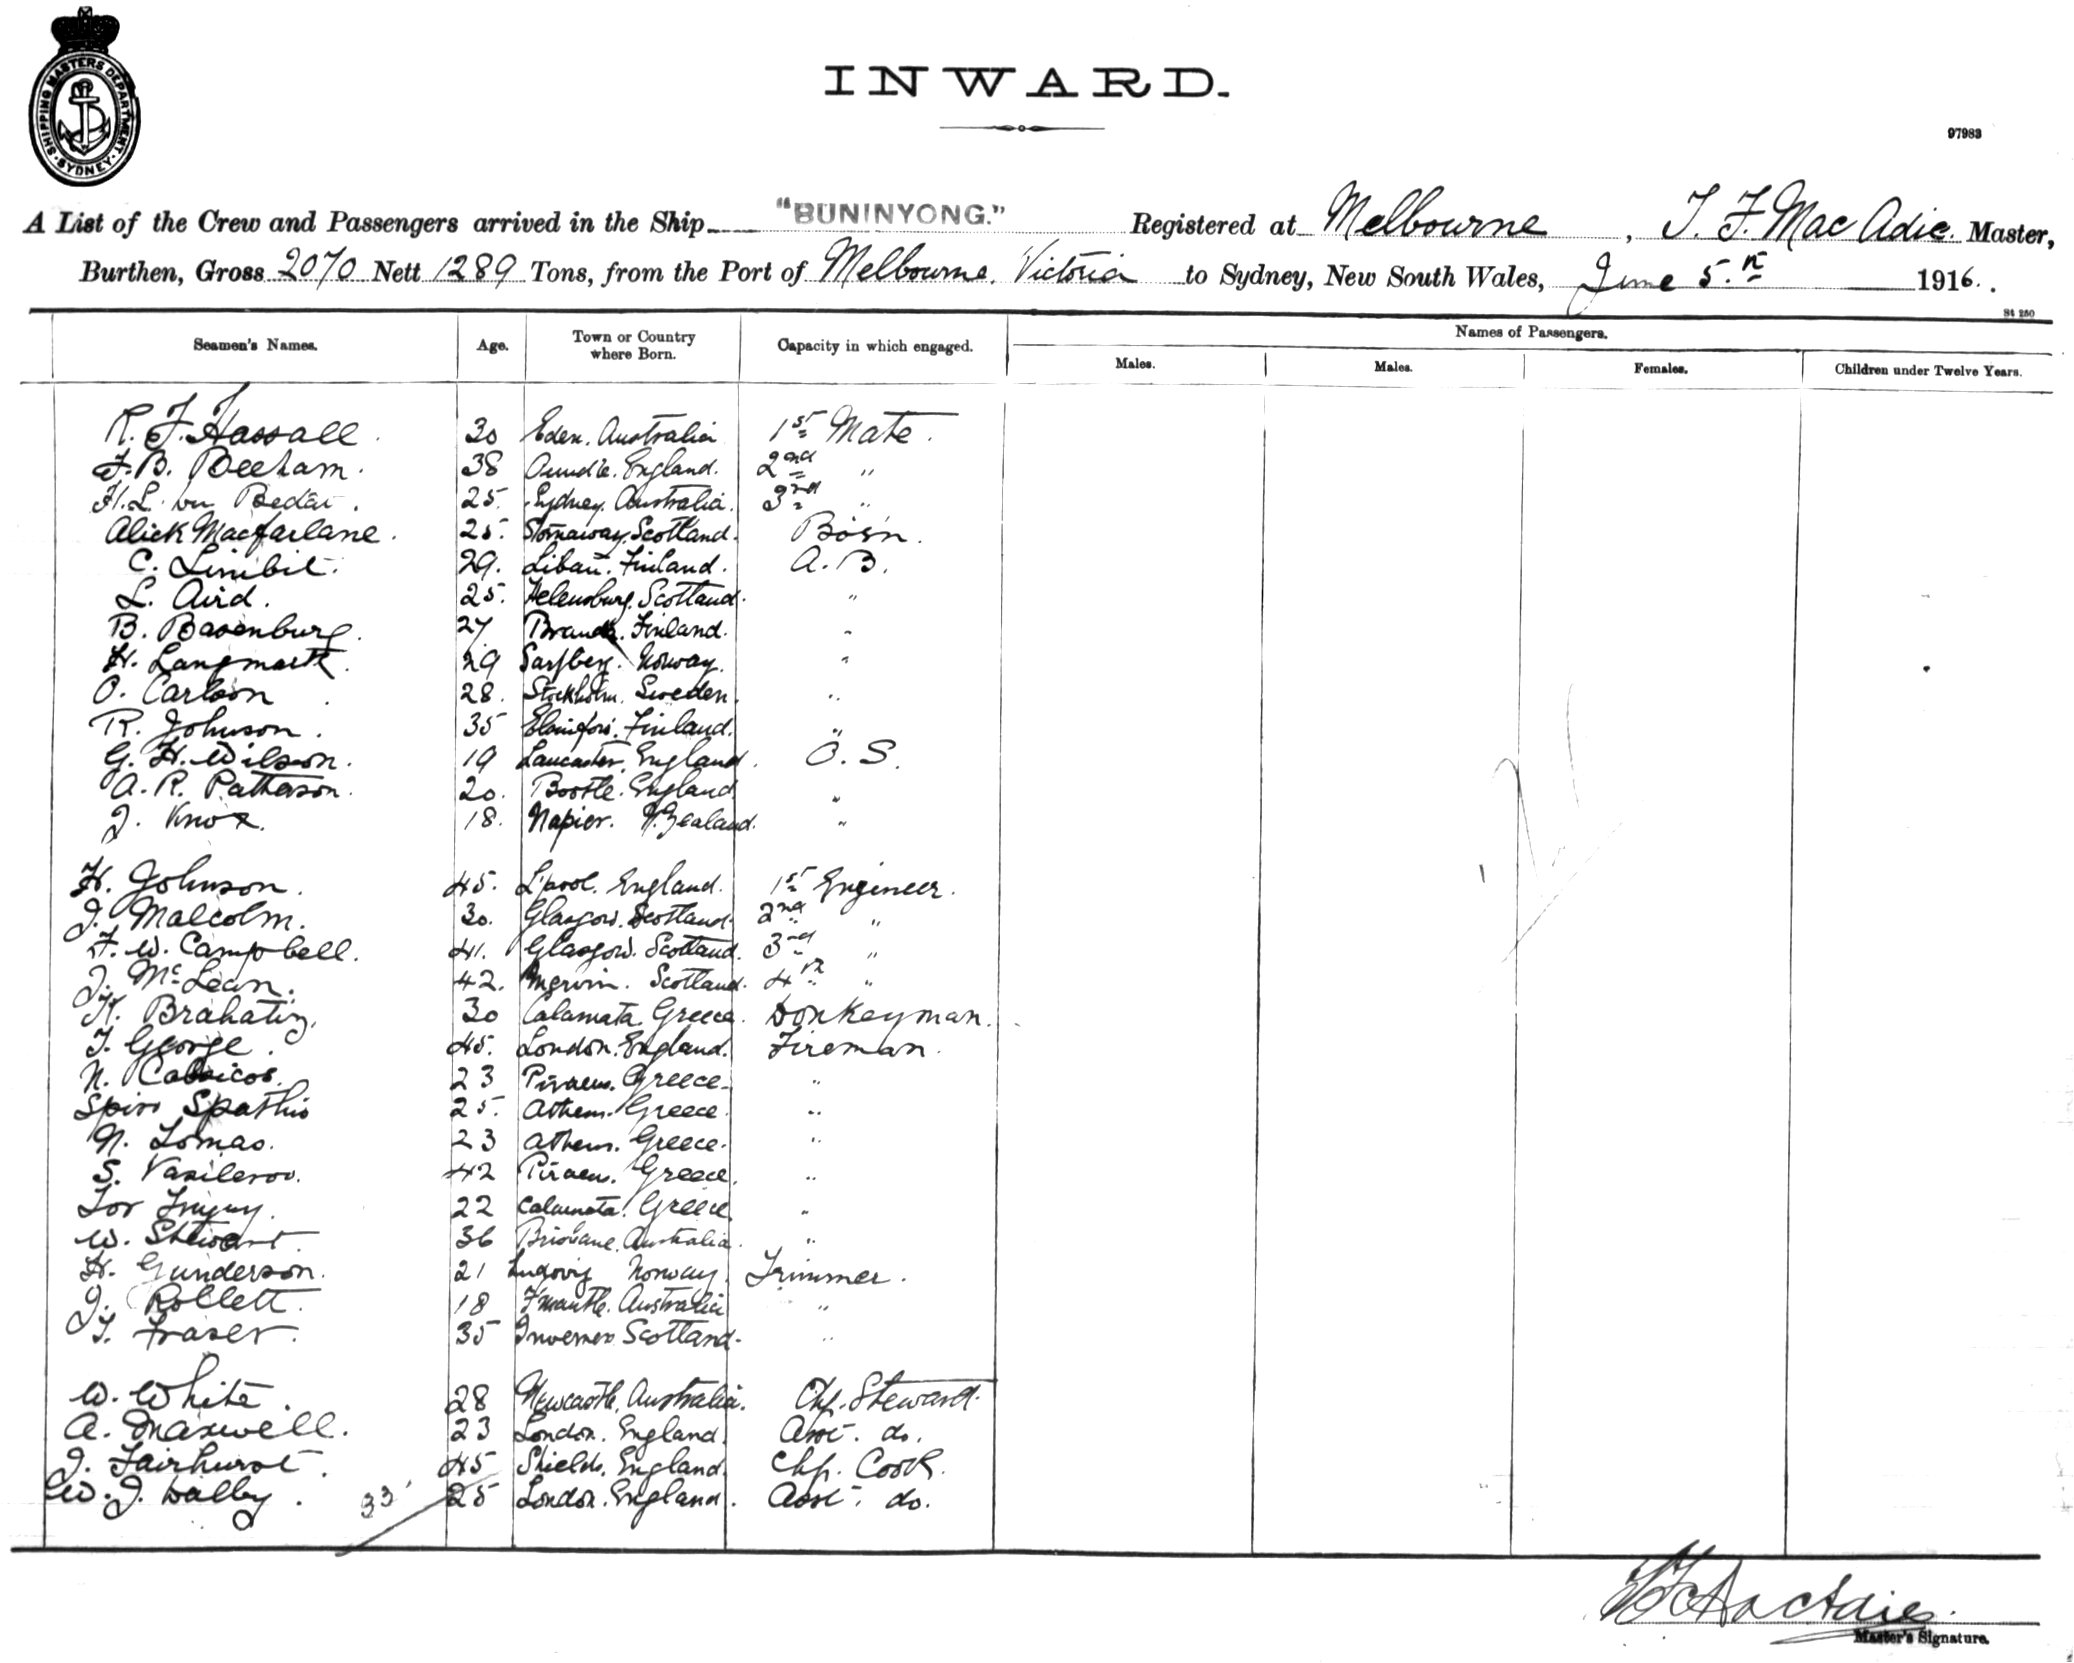 SHIPPING MASTERS DEPARTMENT
SYDNEY
INWARD.
97983
A List of the Crew and Passengers arrived in the Ship "BUNINYONG." Registered at Melbourne, T. F. MacAdie. Master,
Burthen, Gross 2070 Nett 1289 Tons, from the Port of Melbourne. Victoria to Sydney, New South Wales, June 5.th 1916.
St 250
Seamen's Names. Age. Town or Country where Born. Capacity in which engaged. Names of Passengers.
Males. Males. Females. Children under Twelve Years.
R. F. Hassall. 30 Eden. Australia 1st Mate.
F. B. Beeham. 38 England. 2nd "
H. L. 25. Sydney. Australia. 3rd "
Alick Macfarlane. 25. Stornaway. Scotland. Bosn.
C. Linibit. 29. Libau. Finland. A.B.
L. Aird. 25. Helensburg. Scotland. "
B. Basenburg. 27 Finland. "
H. Langmark. 29 Norway. "
O. Carlson. 28. Stockholm. Sweden. "
R. Johnson. 35 Finland. "
G. H. Wilson. 19 Lancaster. England. O.S.
A. R. Patterson. 20. Bootle. England "
J. Knox. 18. Napier. N. Zealand. "
H. Johnson. 45. L'pool. England. 1st Engineer.
J. Malcolm. 30. Glasgow. Scotland. 2nd "
F. W. Campbell. 41. Glasgow. Scotland. 3rd "
J. McLean. 42. Scotland. 4th "
H. 30 Calamata. Greece. Donkeyman.
T. George. 45. London. England. Fireman.
N. 23 Piraeus. Greece. "
Spiro Spathis 25. Athens. Greece. "
N. Lomas. 23 Athens. Greece. "
S. Vasilerov. 42 Piraeus. Greece. "
22 Calamata. Greece. "
W. Stewart. 36 Brisbane. Australia. "
H. Gunderson. 21 Norway. Trimmer.
J. Rollett. 18 F'mantle. Australia "
T. Fraser. 35 Inverness Scotland. "
W. White. 28 Newcastle. Australia. Chf. Steward.
A. Maxwell. 23 London. England. Asst. do.
J. Fairhurst. 45 Shields. England. Chf. Cook.
W. J. Dalby. 33 25 London. England. Asst. do.
T F MacAdie.
Master's Signature.